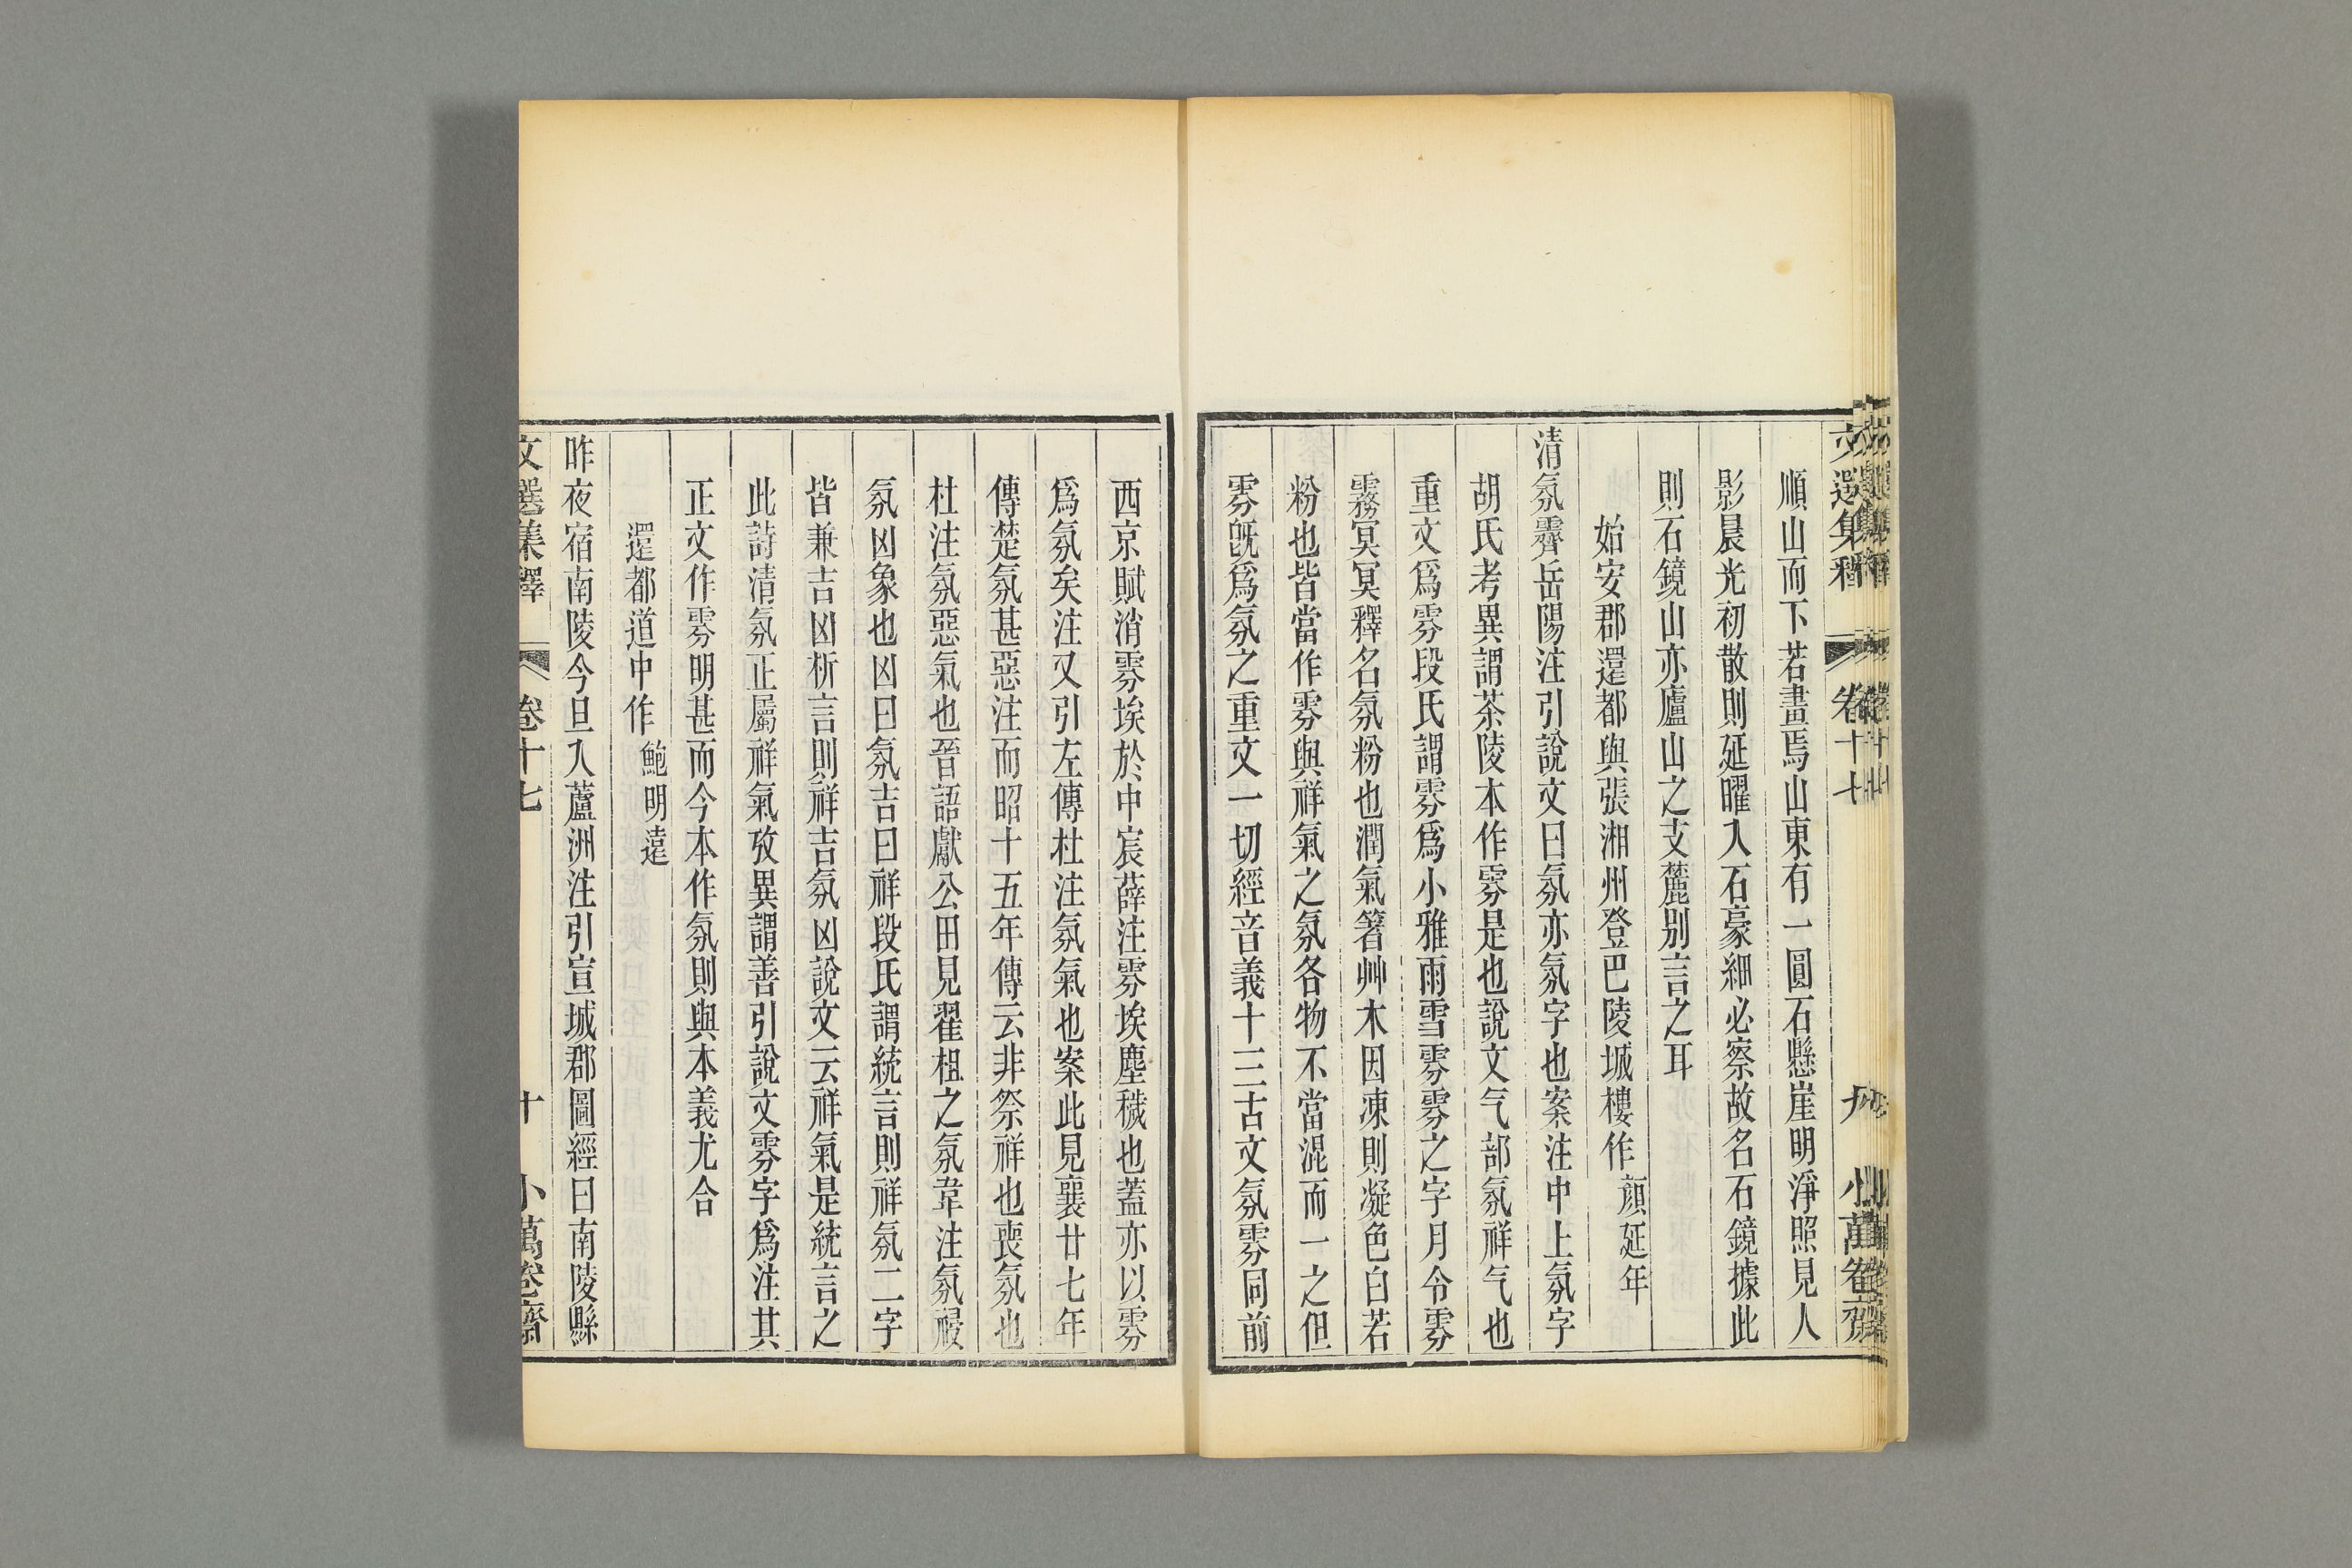 順山而下若畫焉山東有一圓石懸崖明淨照見人
影晨光初散則延曜入石豪細必察故名石鏡據此
則石鏡山亦廬山之支麓別言之耳
始安郡還都與張湘州登巴陵城樓作 顏延年
清氛霽岳陽注引說文曰氛亦氛字也案注中上氛字
胡氏考異謂茶陵本作雰是也說文气部氛祥气也
重文爲雰段氏謂雰爲小雅雨雪雰雰之字月令雰
霧冥冥釋名氛粉也潤氣箸艸木因凍則凝色白若
粉也皆當作雰與祥氣之氛各物不當混而一之但
雰旣爲氛之重文一切經音義十三古文氛雰同前
西京賦消雰埃於中宸薛注雰埃塵穢也蓋亦以雰
爲氛矣注又引左傳杜注氛氣也案此見襄廿七年
傳楚氛甚惡注而昭十五年傳云非祭祥也喪氛也
杜注氛惡氣也晉語獻公田見翟柤之氛韋注氛祲
氛凶象也凶曰氛吉曰祥段氏謂統言則祥氛二字
皆兼吉凶析言則祥吉氛凶說文云祥氣是統言之
此詩清氛正屬祥氣攷異謂善引說文雰字爲注其
正文作雰明甚而今本作氛則與本義尤合
還都道中作 鮑明遠
昨夜宿南陵今旦入蘆洲注引宣城郡圖經曰南陵縣
文選集釋 卷十七 十 小萬卷齋